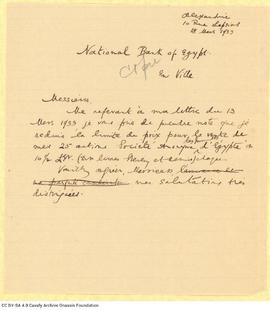 Alexandrie
10 Rue Lepsius
18 Mars 1933
National Bank of Egypt
Copie
En Ville
Messieurs,
Me referant à ma lettre du 13
Mars 1933 je vous prie de prendre note que je
reduis la limite du prix pour la vente de
mes 25 actions Société Anonyme d'Egypte in
10/- LEg. (
Veuillez agréer, Messieurs
mes salutations tres
distinguées.
CC BY-SA 4.0 Cavafy Archive Onassis Foundation